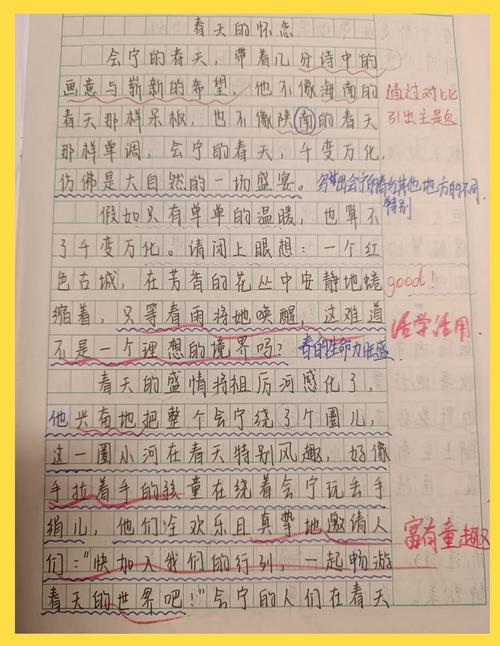 春天的怀念
会宁的春天，带着几分诗中的
画意与崭新的希望，他不像海南的
通过对比
春天那样呆板，也不像陕南的春天
引出主题
那样单调，会宁的春天，千变万化，
仿佛是大自然的一场盛宴。
写出会宁的春与其他地方的不同，
特别
假如只有单单的温暖，也算不
了千变万化。请闭上眼想：一个红
色古城，在芳香的花丛中安静地蜷
good！
缩着，只等春雨将她唤醒，这难道
活学活用
不是一个理想的境界吗？
春的生命力旺盛
春天的盛情将祖厉河感化了，
他兴奋地把整个会宁绕了个圈儿，
这一圈小河在春天特别风趣，好像
手拉着手的孩童在绕着会宁玩丢手
绢儿，他们全欢乐且真挚地邀请人
富有童趣
们："快加入我们的行列，一起畅游
春天的世界吧！"会宁的人们在春天